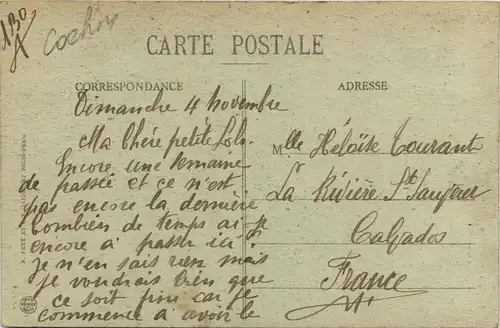 130
A
Cochin
CARTE POSTALE
CORRESPONDANCE
Dimanche 4 novembre
Ma Chère petite Lolo.
Encore une semaine
de passée et ce n'est
pas encore la dernière
Combien de temps ai-je
encore à passer ici.
Je n'en sais rien mais
je voudrais bien que
ce soit fini car je
commence à avoir le
ADRESSE
Mlle Héloïse Tourant
La Rivière St Sauveur
Calvados
France